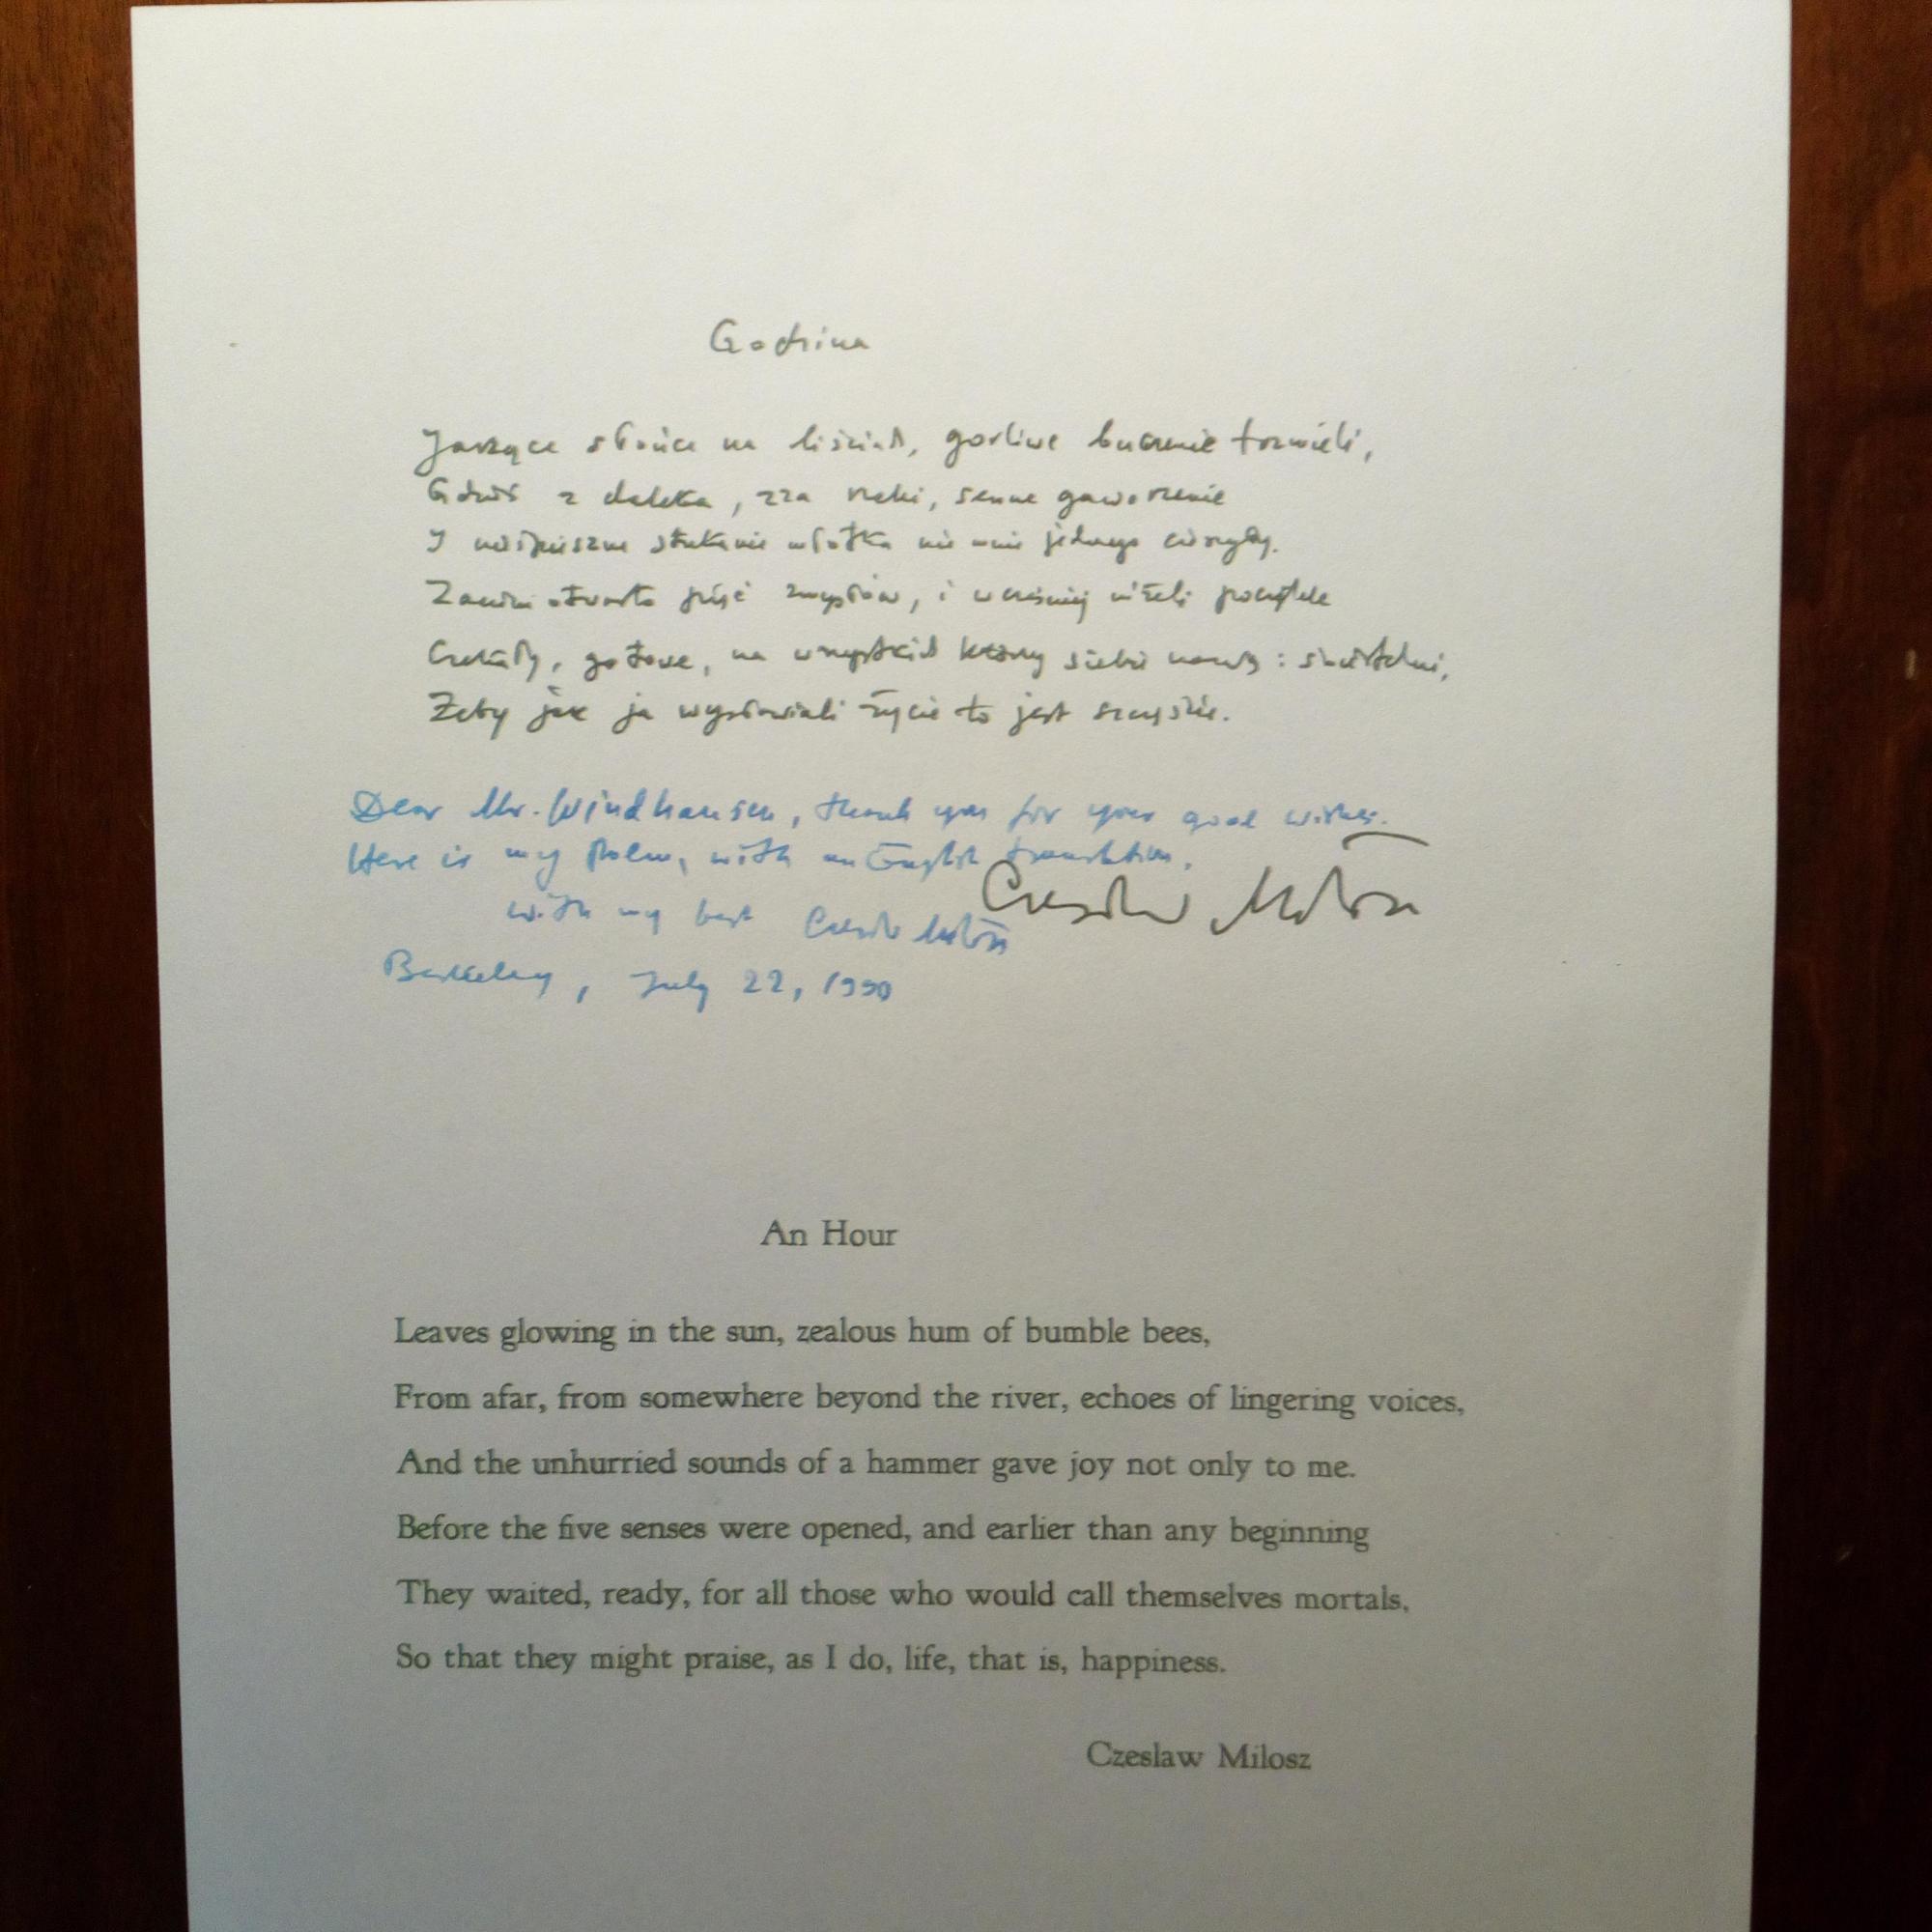 Godzina
Jarzące słońce na liściach, gorliwe buczenie trzmieli,
Gdzieś z daleka, zza rzeki, senne gaworzenie
I nieśpieszne stukanie młotka nie mnie jednego cieszyły.
Zanim otwarto pięć zmysłów, i wcześniej niżeli początek
Czekały, gotowe, na wszystkich którzy siebie nazwą: śmiertelni,
Żeby jak ja wysławiali życie to jest szczęście.
Dear Mr. Windhausen, thank you for your good wishes.
Here is my poem, with an English translation.
Czesław Miłosz
with my best Czesław Miłosz
Berkeley, July 22, 1990
An Hour
Leaves glowing in the sun, zealous hum of bumble bees,
From afar, from somewhere beyond the river, echoes of lingering voices,
And the unhurried sounds of a hammer gave joy not only to me.
Before the five senses were opened, and earlier than any beginning
They waited, ready, for all those who would call themselves mortals,
So that they might praise, as I do, life, that is, happiness.
Czeslaw Milosz